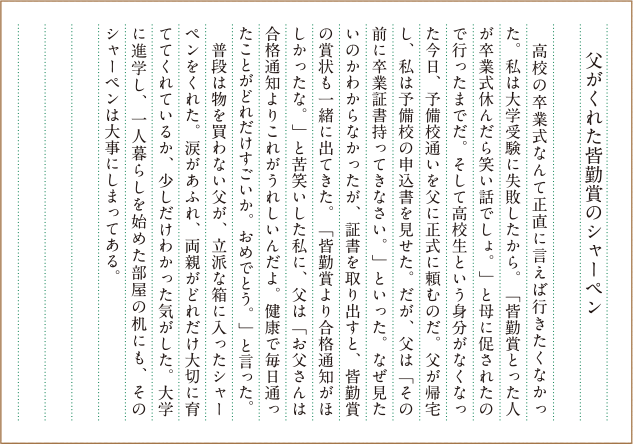 父がくれた皆勤賞のシャーペン
高校の卒業式なんて正直に言えば行きたくなかっ
た。私は大学受験に失敗したから。「皆勤賞とった人
が卒業式休んだら笑い話でしょ。」と母に促されたの
で行ったまでだ。そして高校生という身分がなくなっ
た今日、予備校通いを父に正式に頼むのだ。父が帰宅
し、私は予備校の申込書を見せた。だが、父は「その
前に卒業証書持ってきなさい。」といった。なぜ見た
いのかわからなかったが、証書を取り出すと、皆勤賞
の賞状も一緒に出てきた。「皆勤賞より合格通知がほ
しかったな。」と苦笑いした私に、父は「お父さんは
合格通知よりこれがうれしいんだよ。健康で毎日通っ
たことがどれだけすごいか。おめでとう。」と言った。
普段は物を買わない父が、立派な箱に入ったシャー
ペンをくれた。涙があふれ、両親がどれだけ大切に育
ててくれているか、少しだけわかった気がした。大学
に進学し、一人暮らしを始めた部屋の机にも、その
シャーペンは大事にしまってある。